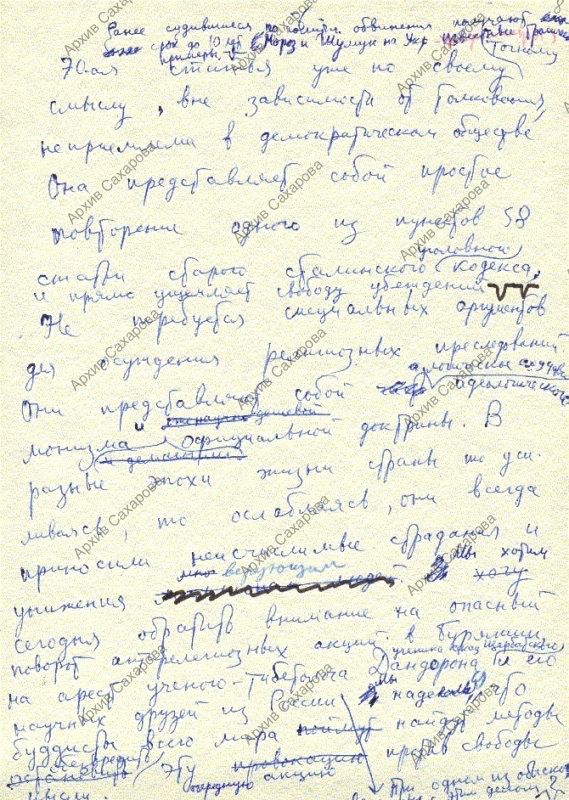 Ранее судившиеся по полит. обвинениям получают
срок до 10 лет Мороз и Шумук на Укр.
примеры
70-ая статья уже по своему точному
смыслу, вне зависимости от толкования,
неприемлема в демократическом обществе
Она представляет собой простое
повторение одного из пунктов 58
статьи старого сталинского уголовного кодекса,
и прямо ущемляет свободу убеждений
Не требуется специальных аргументов
для осуждения религиозных преследований
Они представляют собой идеологического
монизма и официальной доктрины. В
разные эпохи жизни страны то уси-
ливаясь, то ослабляясь, они всегда
приносили неисчислимые страдания и
унижения верующим Мы хотим
сегодня обратить внимание на опасный
поворот антирелигиозных акций в Бурятии,
на арест ученого-тибетолога Дандарона и его
ученика акад. Щербатского
научных друзей из России Мы надеемся, что
буддисты всего мира найдут методы
Эту очередную акцию против свободы
мысли.
При одном из обысков
Архив Сахарова